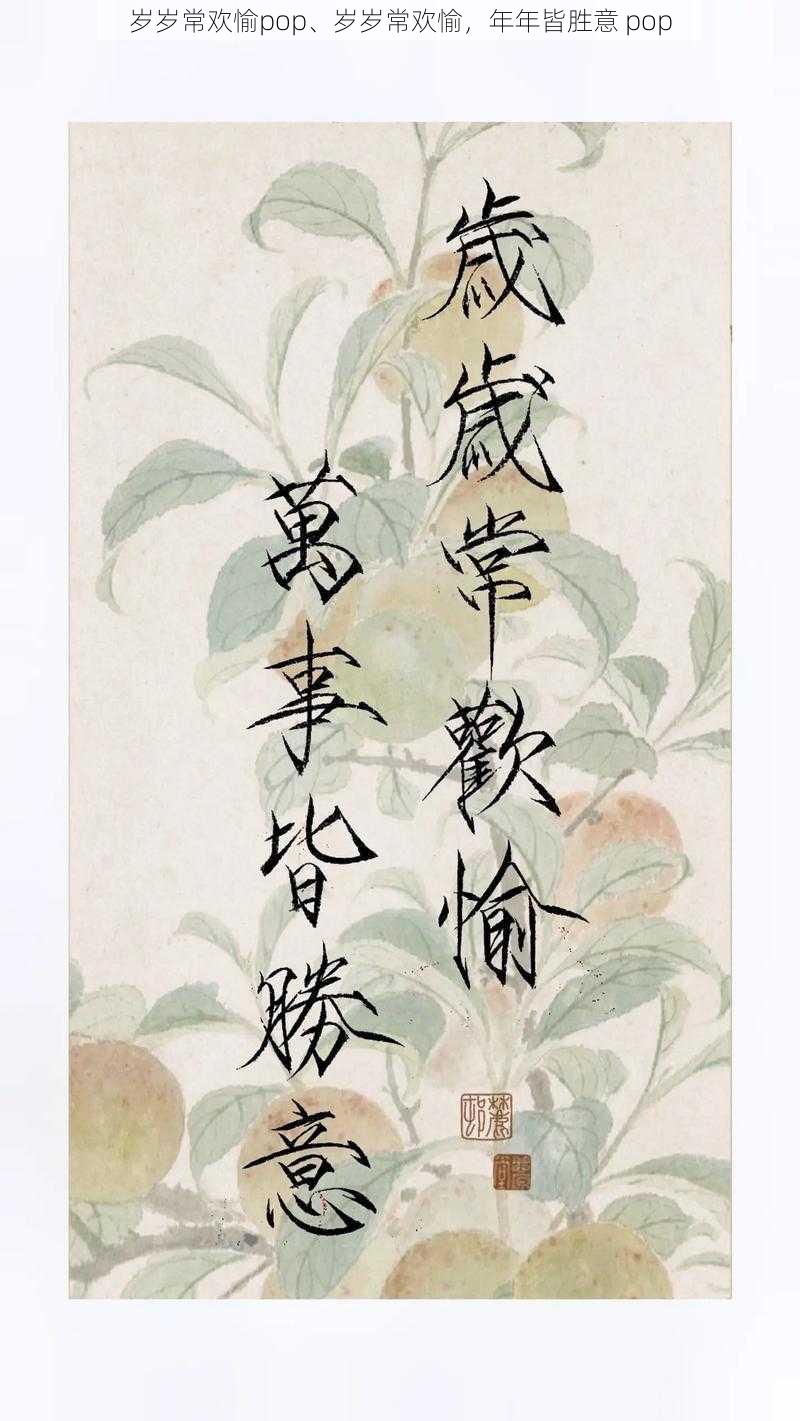 岁岁常欢愉pop、岁岁常欢愉，年年皆胜意 pop
歲歲常歡愉
萬事皆勝意